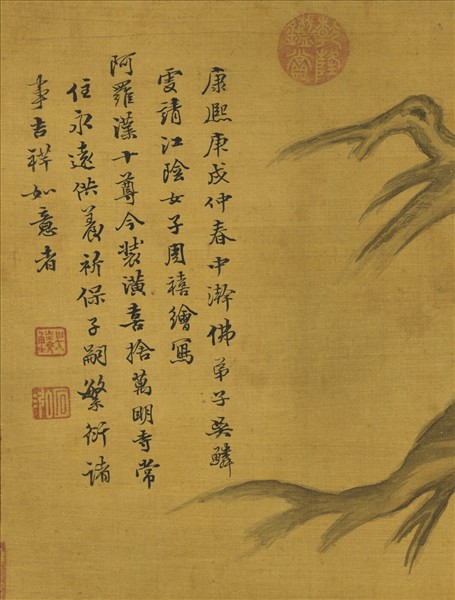 乾隆
鑑賞
康熙庚戌仲春中澣佛弟子吳鱗
雯請江陰女子周禧繪寫
阿羅漢十尊今裝潢喜捨萬明寺常
住永遠供養祈保子嗣繁衍諸
事吉祥如意者